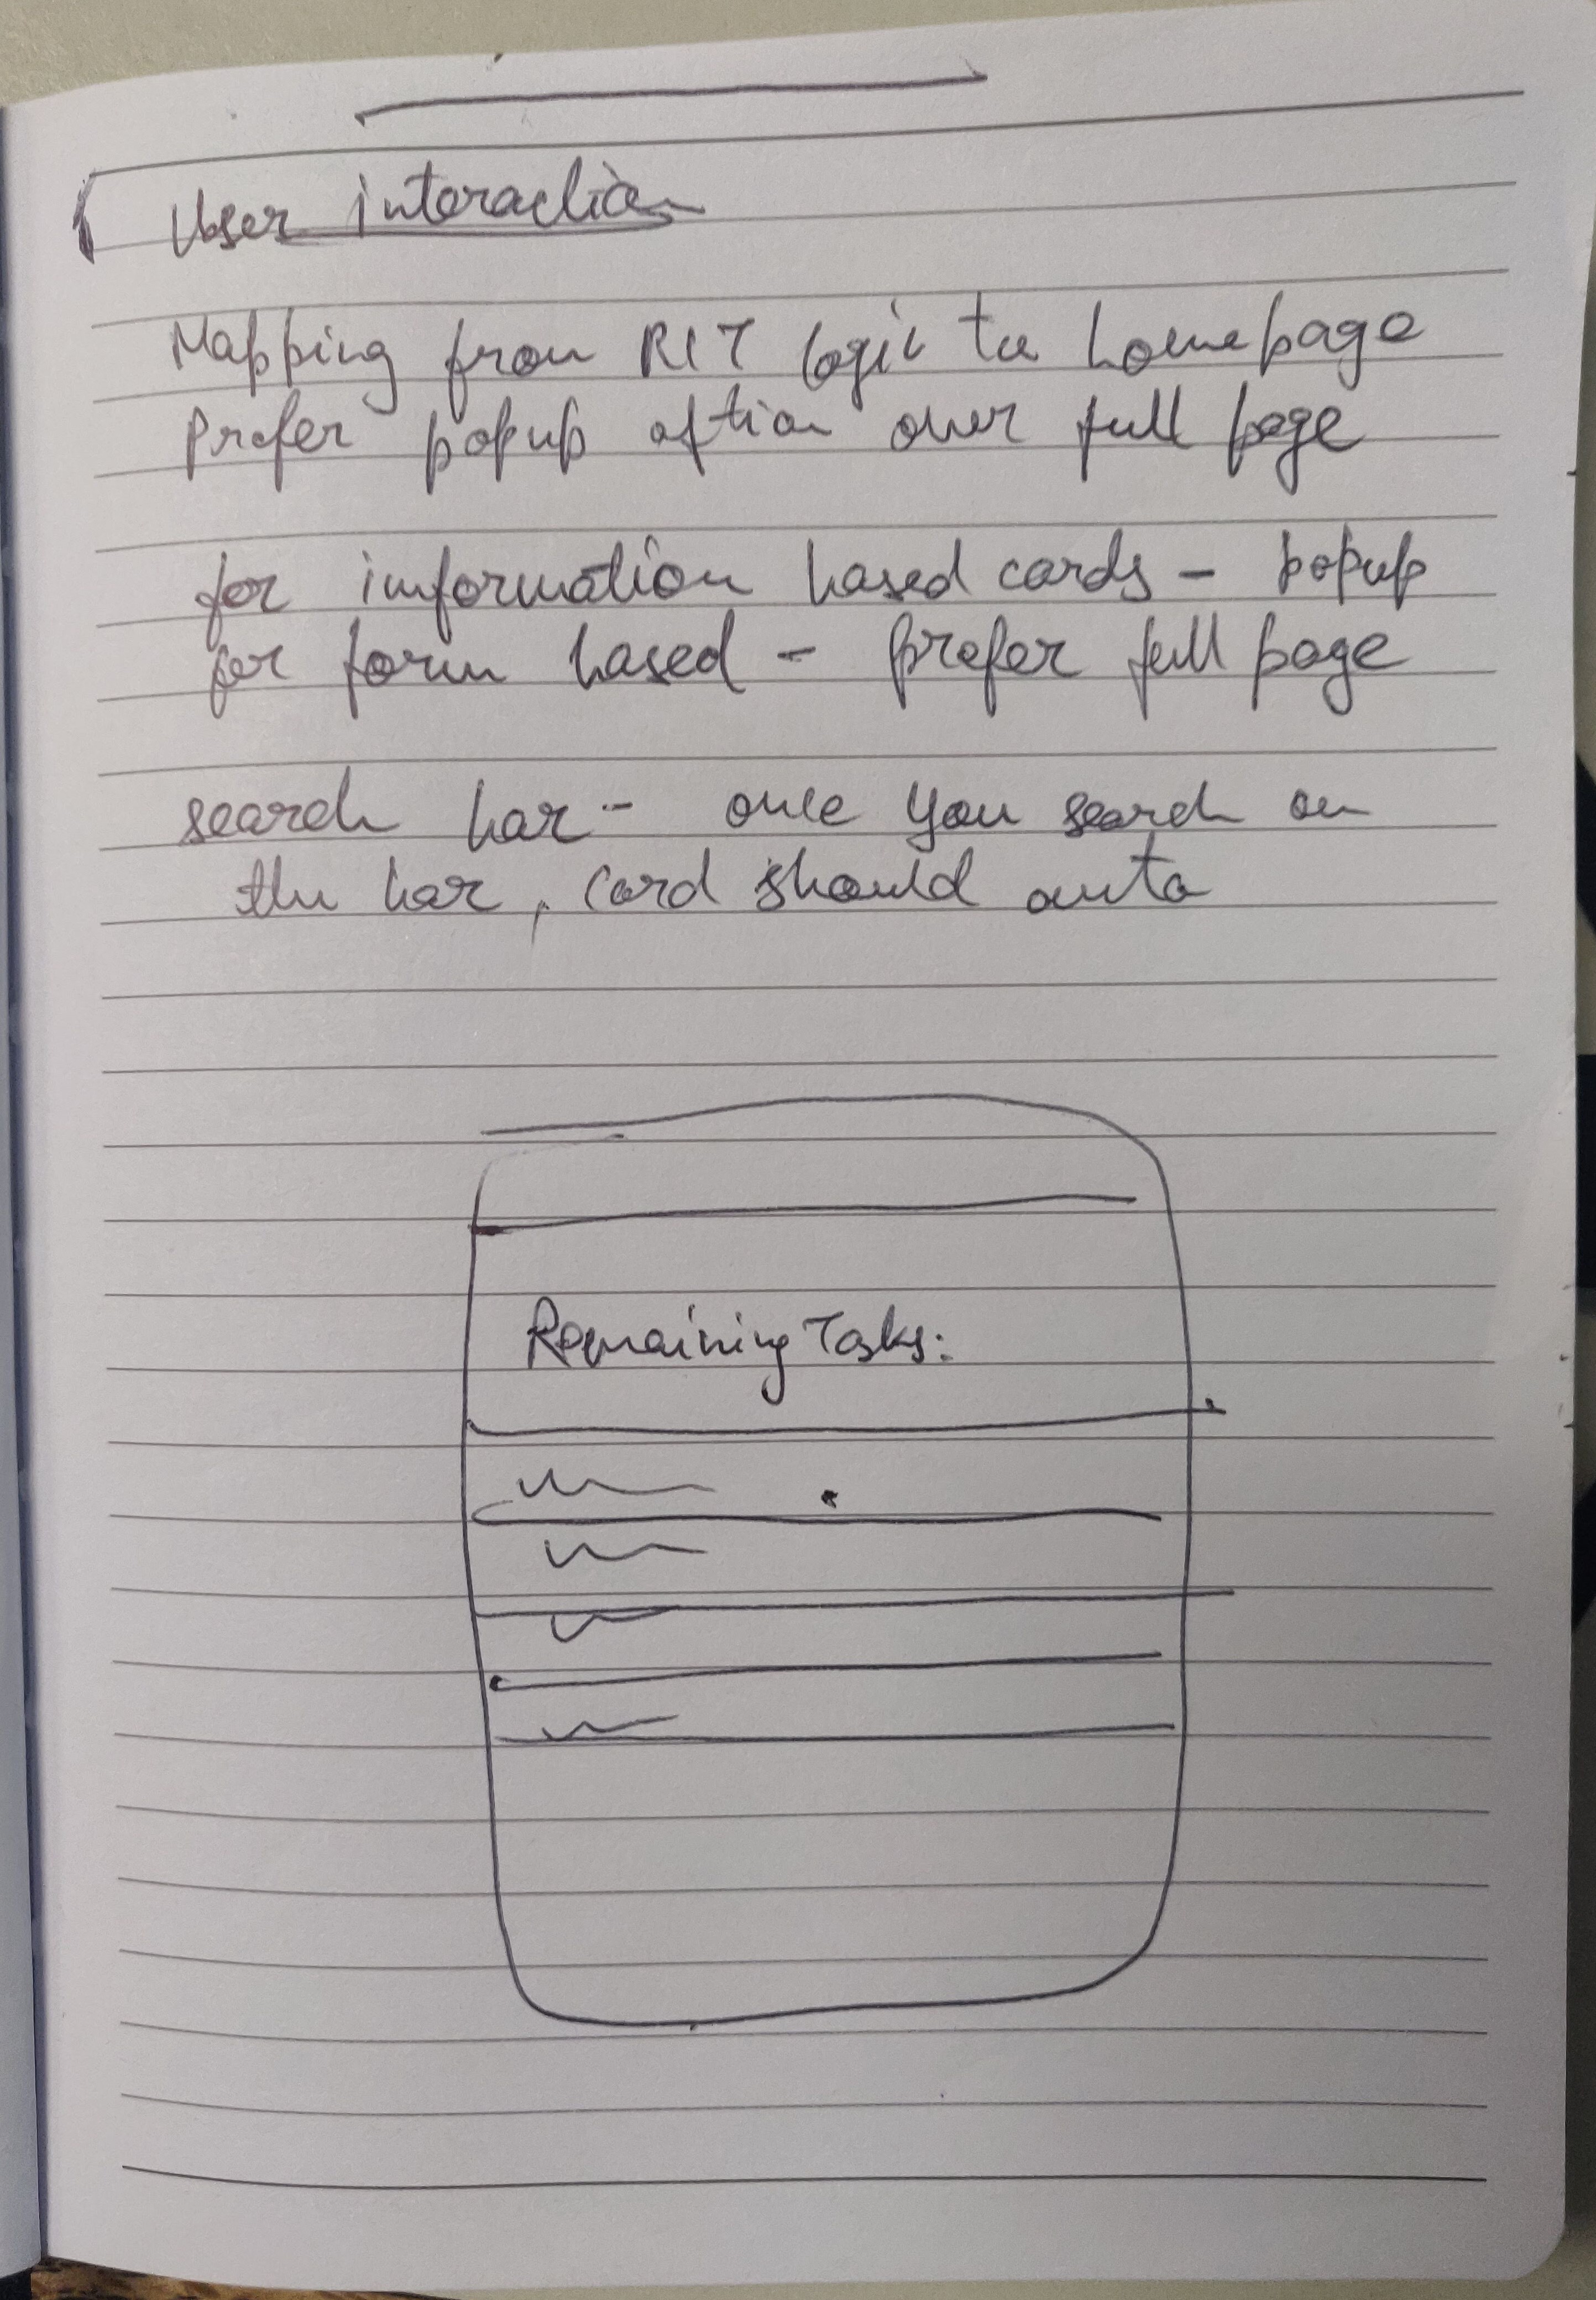 User interaction
Mapping from RIT logic to homepage
Prefer popup option over full page
for information based cards - popup
for form based - prefer full page
search bar - once you search on
the bar, card should auto
Remaining Tasks: